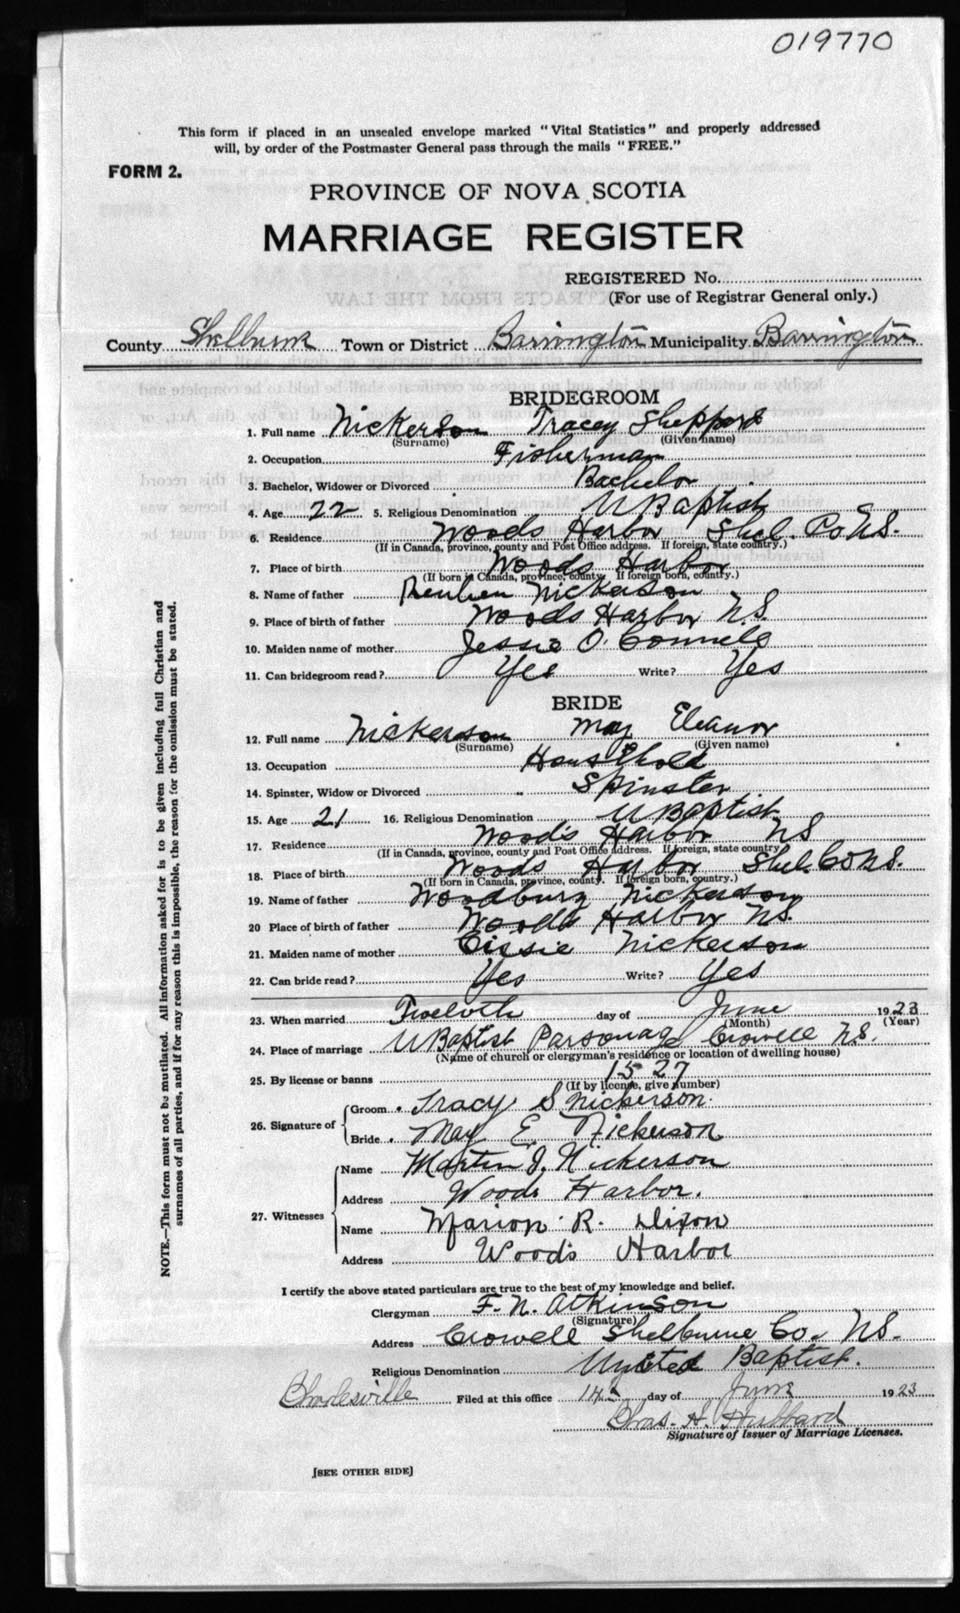 019770
This form if placed in an unsealed envelope marked "Vital Statistics" and properly addressed
will, by order of the Postmaster General pass through the mails "FREE."
FORM 2.
PROVINCE OF NOVA SCOTIA
MARRIAGE REGISTER
REGISTERED No.
(For use of Registrar General only.)
County Shelburne Town or District Barrington Municipality Barrington
BRIDEGROOM
1. Full name Nickerson Tracey Sheppard
(Surname) (Given name)
2. Occupation Fisherman
3. Bachelor, Widower or Divorced Bachelor
4. Age 22 5. Religious Denomination U Baptist
6. Residence Woods Harbor Shel. Co N.S.
(If in Canada, province, county and Post Office address. If foreign, state country.)
7. Place of birth Woods Harbor
(If born in Canada, province, county. If foreign born, country.)
8. Name of father Reuben Nickerson
9. Place of birth of father Woods Harbor N.S.
10. Maiden name of mother Jessie O. Connell
11. Can bridegroom read? Yes Write? Yes
BRIDE
12. Full name Nickerson May Eleanor
(Surname) (Given name)
13. Occupation Household
14. Spinster, Widow or Divorced Spinster
15. Age 21 16. Religious Denomination U Baptist
17. Residence Wood's Harbor NS
(If in Canada, province, county and Post Office address. If foreign, state country
18. Place of birth Woods Harbor Shel. Co N.S.
(If born in Canada, province, county. If foreign born, country.)
19. Name of father Woodbury Nickerson
20 Place of birth of father Woods Harbor N.S.
21. Maiden name of mother Cissie Nickerson
22. Can bride read? Yes Write? Yes
23. When married Twelvth day of June 1923
(Month) (Year)
24. Place of marriage U Baptist Parsonage Crowell N.S.
(Name of church or clergyman's residence or location of dwelling house)
25. By license or banns 1527
(If by license, give number)
26. Signature of Groom Tracy S Nickerson
Bride May E. Nickerson
27. Witnesses Name Martin J. Nickerson
Address Woods Harbor.
Name Marion R. Dixon
Address Wood's Harbor
I certify the above stated particulars are true to the best of my knowledge and belief.
Clergyman F. N. Atkinson
(Signature)
Address Crowell Shelburne Co. N.S.
Religious Denomination United Baptist.
Charlesville Filed at this office 14th day of June 1923
Chas. H. Hubbard
Signature of Issuer of Marriage Licenses.
[SEE OTHER SIDE]
NOTE.—This form must not be mutilated. All information asked for is to be given including full Christian and
surnames of all parties, and if for any reason this is impossible, the reason for the omission must be stated.